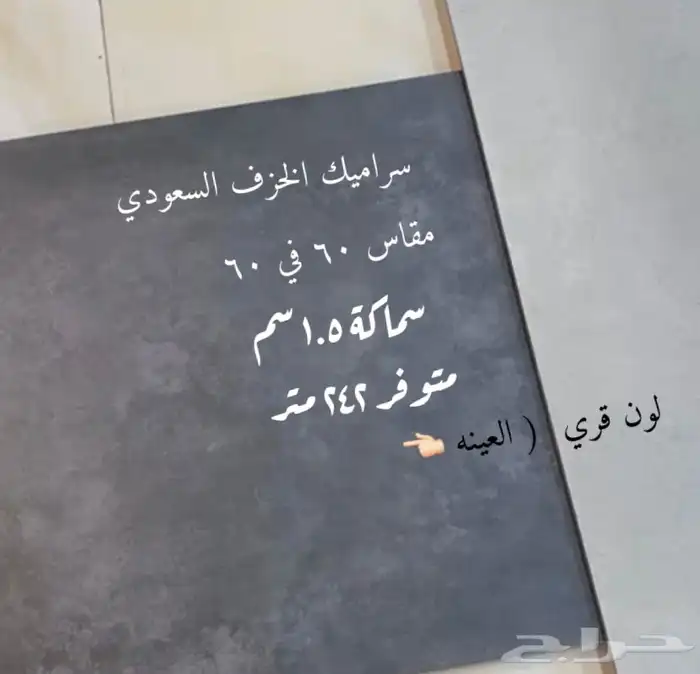 سراميك الخزف السعودي
مقاس ٦٠ في ٦٠
سماكة ١.٥ سم
متوفر ٢٤٢ متر
لون قري ( العينه 👈🏻
حراج